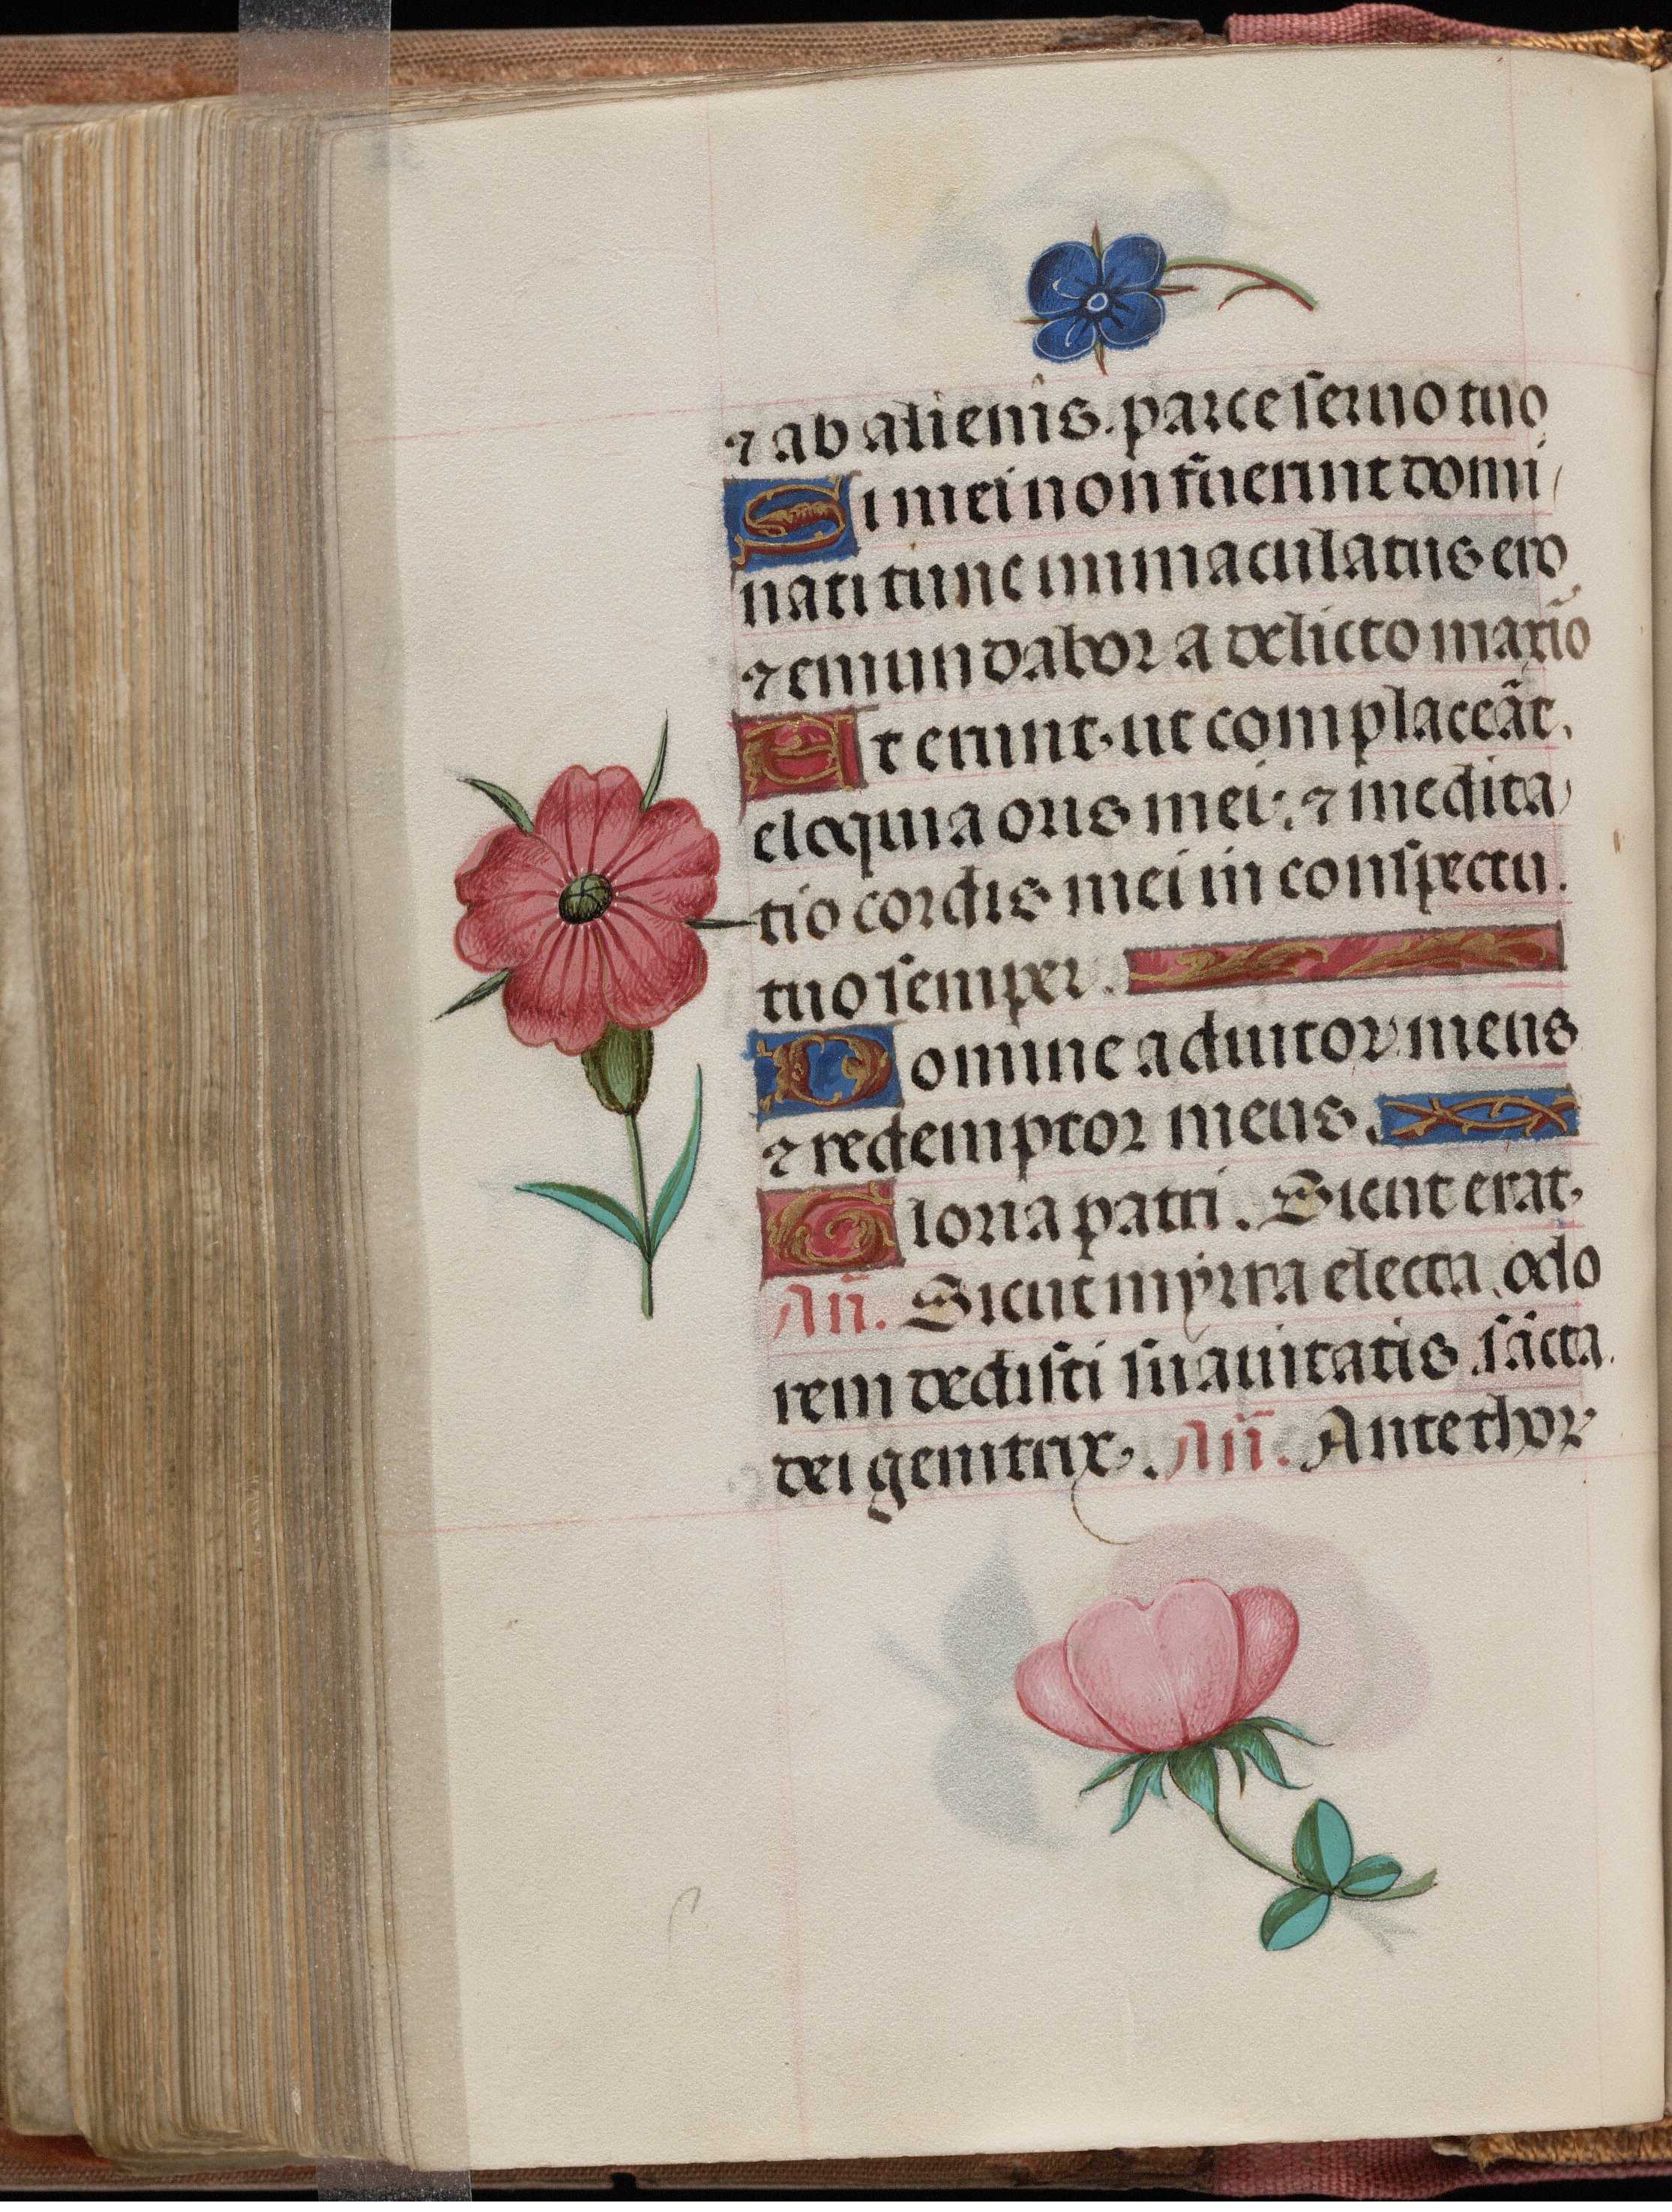 ⁊ ab alienis. parce seruo tuo
Si mei non fuerint domi
nati tunc immaculatus ero
⁊ emundabor a delicto maxīo
Et erunt ut complaceāt
eloquia oris mei: ⁊ medita
tio cordis mei in conspectu
tuo semper.
Domine adiutor meus
⁊ redemptor meus.
Gloria patri. Sicut erat
An̄. Sicut myrra electa odo
rem dedisti suauitatis sācta
dei genitrix. An̄. Ante thor